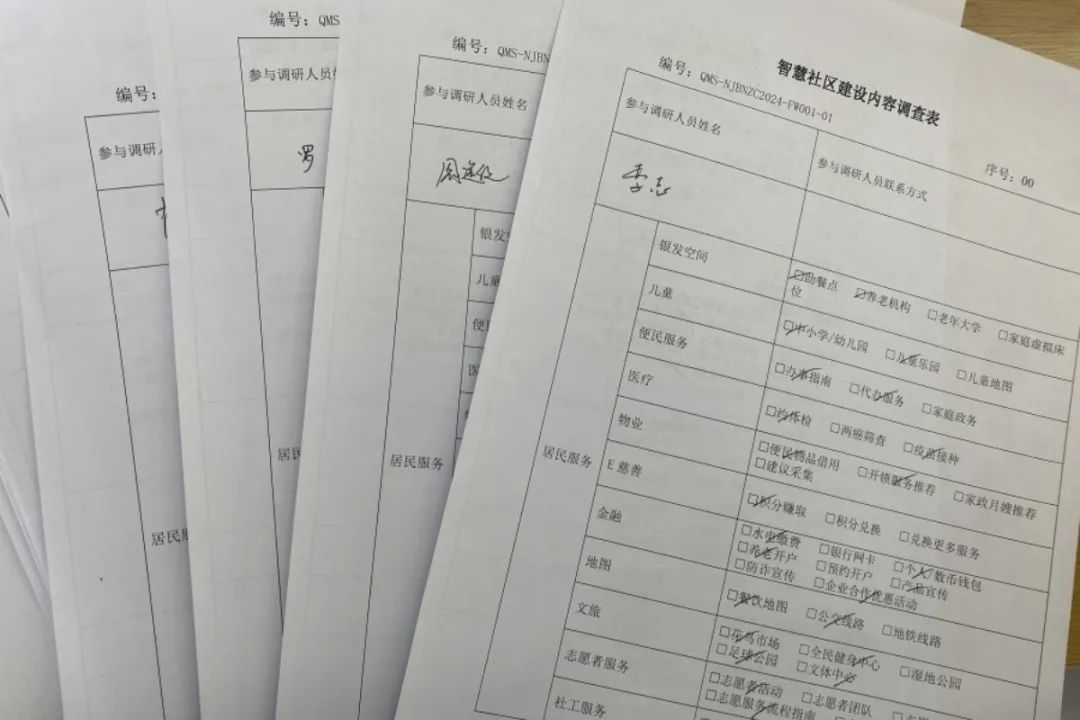 编号：
参与调研人
居民服
编号：QMS
参与调研人员姓
罗
居民
编号：QMS-NJBN
参与调研人员姓名
银发
儿童
便
医
居民服务
智慧社区建设内容调查表
编号：QMS-NJBNZC2024-FW001-01
序号：00
参与调研人员姓名
参与调研人员联系方式
李志
居民服务
银发空间
☐助餐点位 ☐养老机构 ☐老年大学 ☐家庭虚拟床
儿童
☐中小学/幼儿园 ☐儿童乐园 ☐儿童地图
便民服务
☐办事指南 ☐代办服务 ☐家庭政务
医疗
☐约体检 ☐两癌筛查 ☐疫苗接种
物业
☐便民物品借用 ☐开锁服务推荐 ☐家政月嫂推荐
☐建议采集
E慈善
☐积分赚取 ☐积分兑换 ☐兑换更多服务
金融
☐水电缴费 ☐银行网卡 ☐个人/数币钱包
☐养老开户 ☐预约开户 ☐产品宣传
☐防诈宣传 ☐企业合作优惠活动
地图
☐餐饮地图 ☐公交线路 ☐地铁线路
文旅
☐花鸟市场 ☐全民健身中心 ☐湿地公园
☐足球公园 ☐文体中心
志愿者服务
☐志愿者活动 ☐志愿者团队 ☐志
☐志愿服务流程指南
社工服务